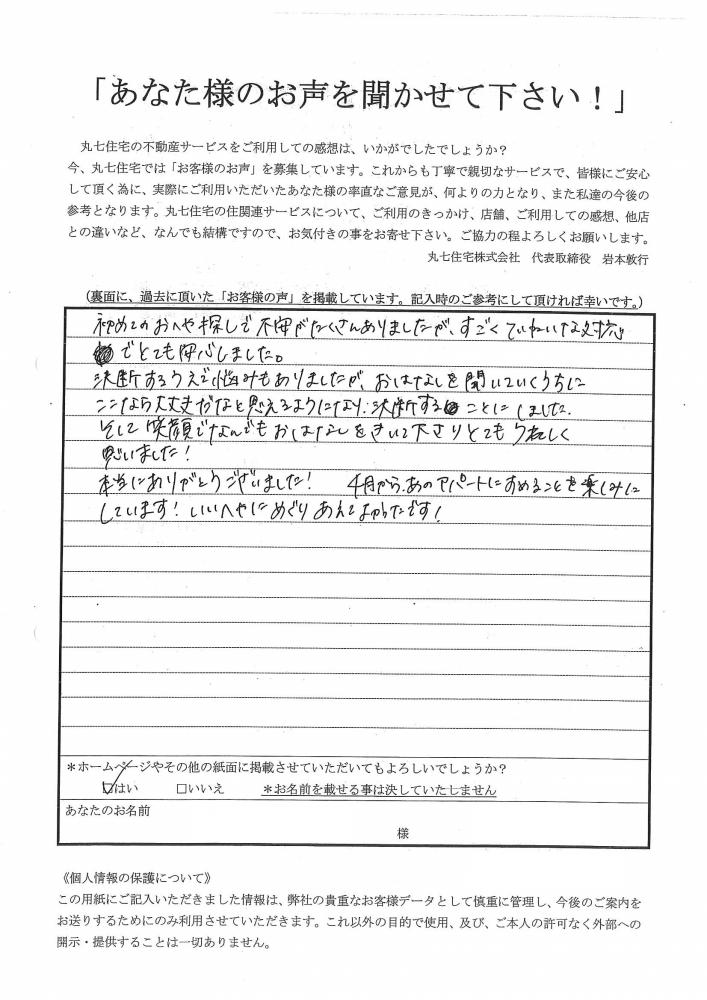 「あなた様のお声を聞かせて下さい！」
丸七住宅の不動産サービスをご利用しての感想は、いかがでしたでしょうか？
今、丸七住宅では「お客様のお声」を募集しています。これからも丁寧で親切なサービスで、皆様にご安心
して頂く為に、実際にご利用いただいたあなた様の率直なご意見が、何よりの力となり、また私達の今後の
参考となります。丸七住宅の住関連サービスについて、ご利用のきっかけ、店舗、ご利用しての感想、他店
との違いなど、なんでも結構ですので、お気付きの事をお寄せ下さい。ご協力の程よろしくお願いします。
丸七住宅株式会社　代表取締役　岩本敦行
（裏面に、過去に頂いた「お客様の声」を掲載しています。記入時のご参考にして頂ければ幸いです。）
初めてのおへや探しで不安がたくさんありましたが、すごくていねいな対応
でとても安心しました。
決断するうえで悩みもありましたが、おはなしを聞いていくうちに
ここなら大丈夫だなと思えるようになり、決断することにしました。
そして笑顔でなんでもおはなしをきいて下さりとてもうれしく
思いました！
本当にありがとうございました！　4月から、あのアパートにすめることを楽しみに
しています！いいへやにめぐりあえてよかったです！
＊ホームページやその他の紙面に掲載させていただいてもよろしいでしょうか？
☑はい　□いいえ　＊お名前を載せる事は決していたしません
あなたのお名前
様
《個人情報の保護について》
この用紙にご記入いただきました情報は、弊社の貴重なお客様データとして慎重に管理し、今後のご案内を
お送りするためにのみ利用させていただきます。これ以外の目的で使用、及び、ご本人の許可なく外部への
開示・提供することは一切ありません。